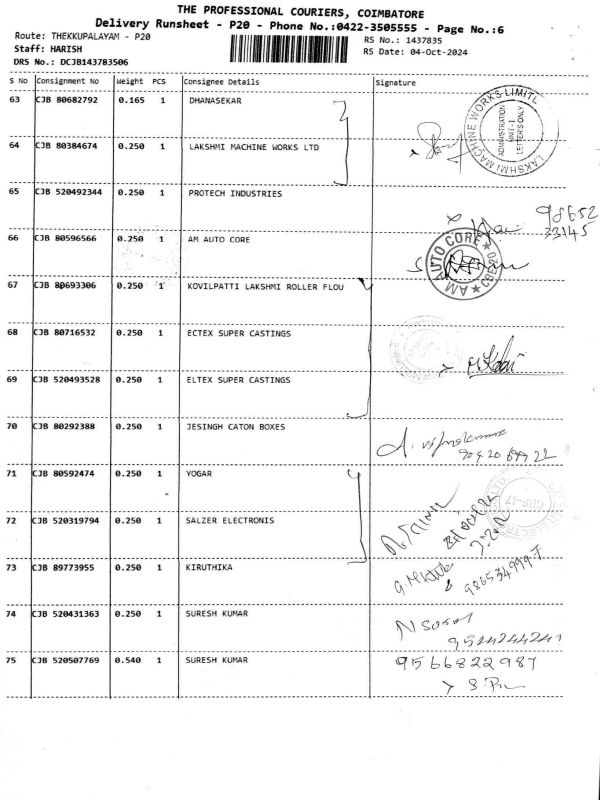 THE PROFESSIONAL COURIERS, COIMBATORE
Delivery Runsheet - P20 - Phone No.:0422-3505555 - Page No.:6
Route: THEKKUPALAYAM - P20
RS No.: 1437835
Staff: HARISH
RS Date: 04-Oct-2024
DRS No.: DCJB143783506
S No Consignment No Weight PCS Consignee Details Signature
63 CJB 80682792 0.165 1 DHANASEKAR
LAKSHMI MACHINE WORKS LIMITED
ADMINISTRATION
UNIT-I
LETTERS ONLY
64 CJB 80384674 0.250 1 LAKSHMI MACHINE WORKS LTD
65 CJB 520492344 0.250 1 PROTECH INDUSTRIES
98652
33145
66 CJB 80596566 0.250 1 AM AUTO CORE
AM AUTO CORE
67 CJB 80693306 0.250 1 KOVILPATTI LAKSHMI ROLLER FLOU
68 CJB 80716532 0.250 1 ECTEX SUPER CASTINGS
69 CJB 520493528 0.250 1 ELTEX SUPER CASTINGS
70 CJB 80292388 0.250 1 JESINGH CATON BOXES
71 CJB 80592474 0.250 1 YOGAR
72 CJB 520319794 0.250 1 SALZER ELECTRONIS
73 CJB 89773955 0.250 1 KIRUTHIKA
74 CJB 520431363 0.250 1 SURESH KUMAR
75 CJB 520507769 0.540 1 SURESH KUMAR
9566822987